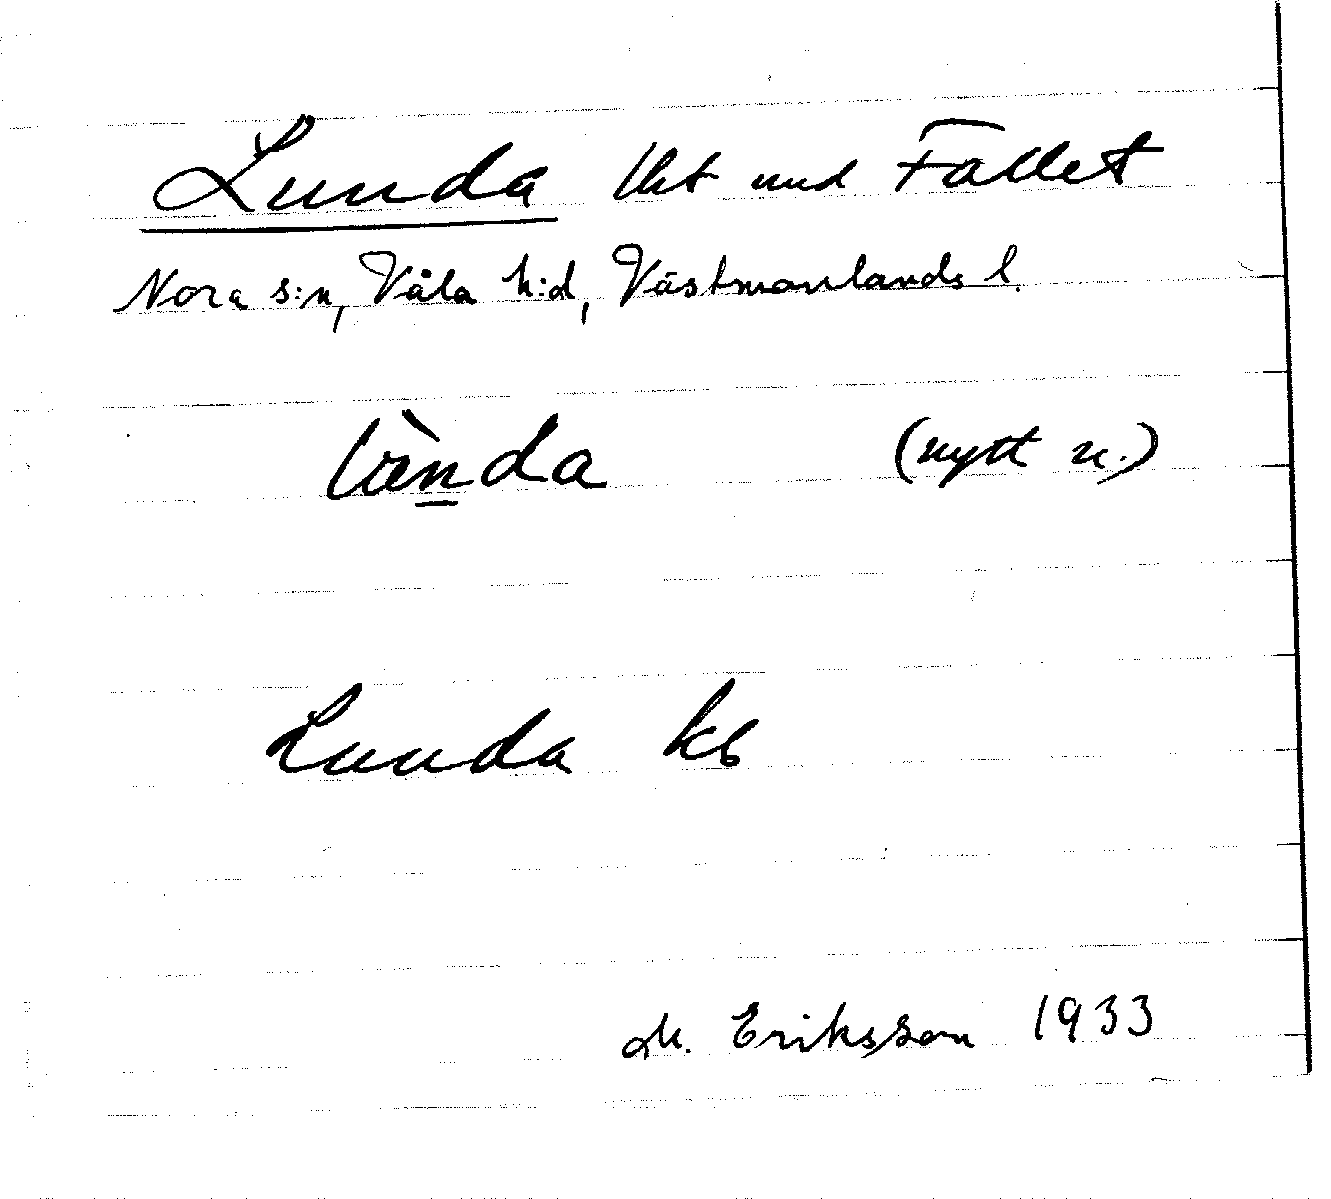 Lunda lht und Fallet
Nora s:n, Våla h:d, Västmanlands l.
lò̀nda (nytt n.)
Lunda kb
M. Eriksson 1933